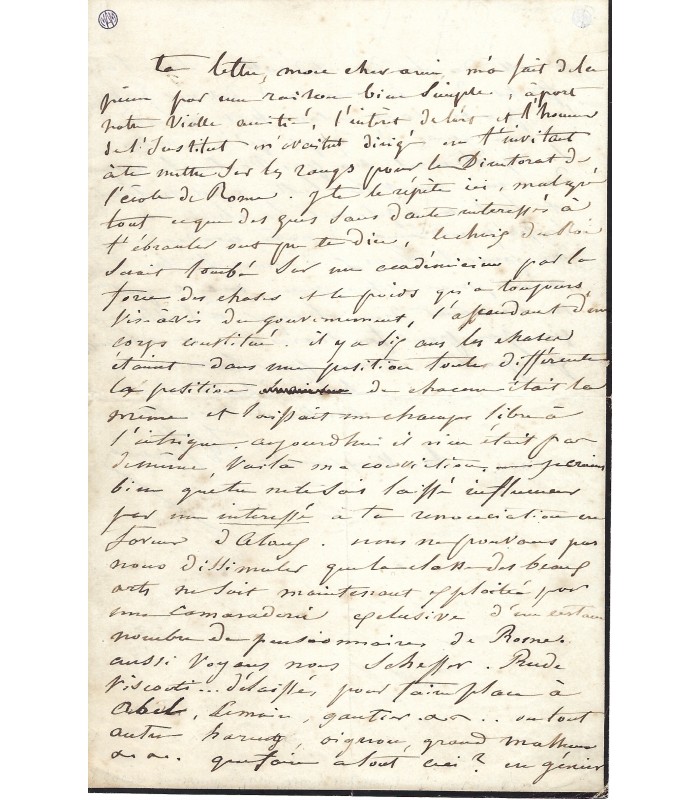 ta lettre, mon cher ami, m'a fait de la
peine par une raison bien simple, à part
notre vieille amitié, l'intérêt de l'art et l'honneur
de l'Institut m'avaient dirigé en t'invitant
à te mettre sur les rangs pour le Directorat de
l'école de Rome. Je te le répète ici, malgré
tout ce que des gens sans doute interessés à
t'ébranler ont pu te dire, le choix du Roi
serait tombé sur un académicien par la
force des choses et le poids qu'a toujours
vis-à-vis du gouvernement, l'ascendant d'un
corps constitué. il y a dix ans les choses
étaient dans une position toute différente
la position de chacun était la
même et laissait un champ libre à
l'intrigue, aujourd'hui il n'en était pas
de même, voilà ma conviction. je crains
bien que tu ne te sois laissé influencer
par un interessé à ta renonciation en
faveur d'Alaux. nous ne pouvons pas
nous dissimuler que la classe des beaux
arts ne soit maintenant exploitée par
une camaraderie exclusive d'un certain
nombre de pensionnaires de Rome.
aussi voyons nous Scheffer. Rude
Visconti... délaissés, pour faire place à
Abel, Lemaire, gautier ... ou tout
autre oignon, grand
que faire à tout ceci? en gémir